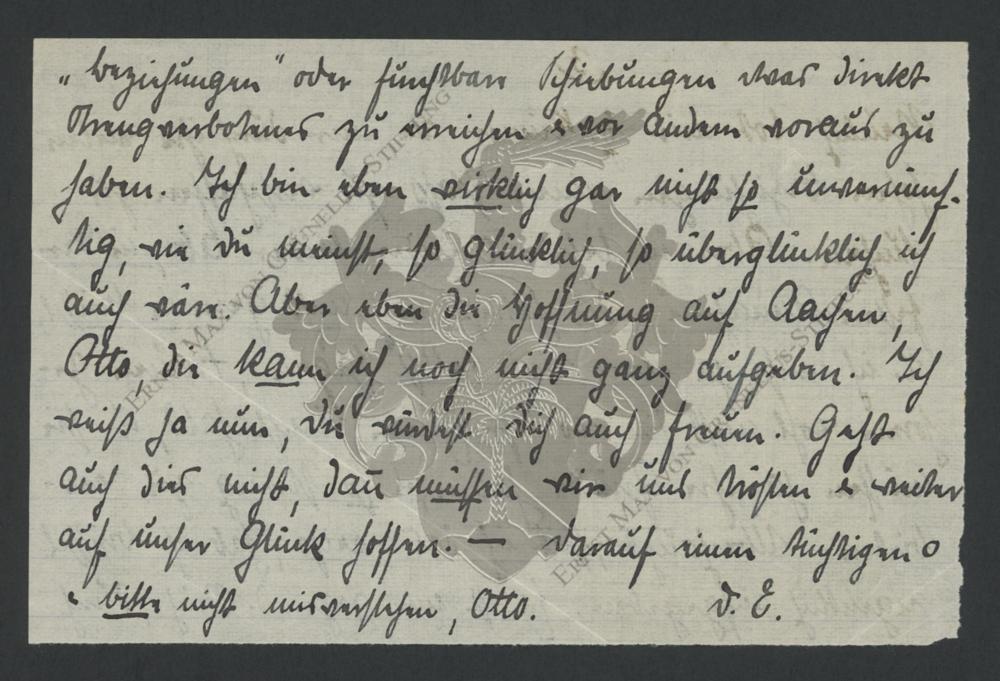 „Beziehungen“ oder furchtbare Schiebungen etwas direkt
Strengverbotenes zu erreichen & vor Andern voraus zu
haben. Ich bin eben wirklich gar nicht so unvernünf-
tig, wie Du meinst, so glücklich, so überglücklich ich
auch wäre. Aber eben die Hoffnung auf Aachen,
Otto, die kann ich noch nicht ganz aufgeben. Ich
weiß ja nun, Du würdest Dich auch freuen. Geht
auch dies nicht, dann müssen wir uns trösten & weiter
auf unser Glück hoffen. — Darauf einen tüchtigen o
& bitte nicht misverstehen, Otto. D. E.
ERNST MAX VON GRUNELIUS-STIFTUNG
ERNST MAX VON GRUNELIUS-STIFTUNG